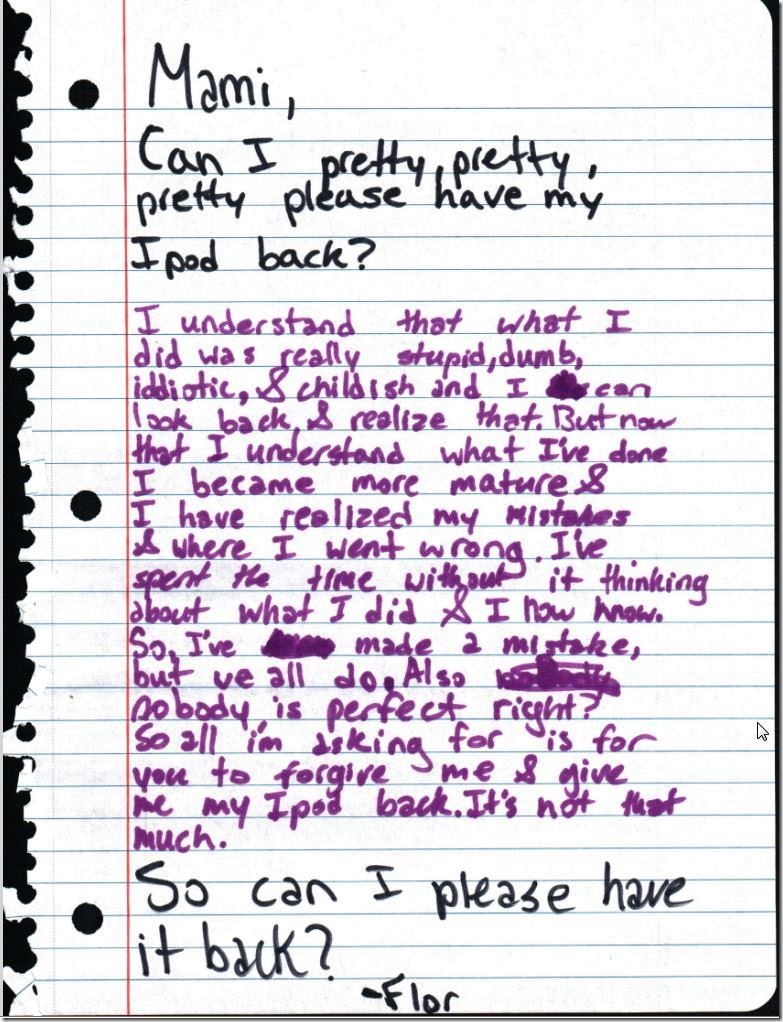 Mami,
Can I pretty, pretty,
pretty please have my
Ipod back?
I understand that what I
did was really stupid, dumb,
iddiotic, & childish and I can
look back, & realize that. But now
that I understand what I've done
I became more mature &
I have realized my mistakes
& where I went wrong. I've
spent the time without it thinking
about what I did & I now know.
So, I've made a mistake,
but we all do. Also nobody
nobody is perfect right?
So all i'm asking for is for
you to forgive me & give
me my Ipod back. It's not that
much.
So can I please have
it back?
-Flor